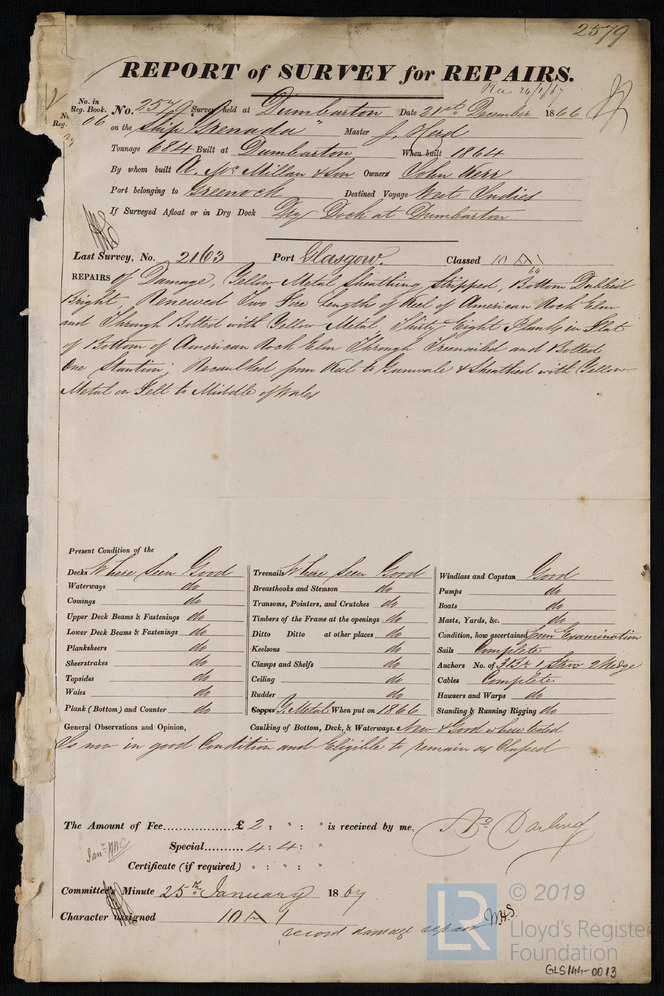 2579
REPORT of SURVEY for REPAIRS.
Rec 24/1/67
No. in Reg. Book.
No. 2579 Survey held at Dumbarton Date 21st December 1866
66 on the Ship "Grenada" Master J. Herd
Tonnage 684 Built at Dumbarton When built 1864
By whom built A. McMillan & Son Owners John Kerr
Port belonging to Greenock Destined Voyage West Indies
If Surveyed Afloat or in Dry Dock Dry Dock at Dumbarton
Last Survey, No. 2163 Port Glasgow. Classed 10 A 1
64
REPAIRS of Damage, Yellow Metal Sheathing Stripped, Bottom Dubbed
Bright, Renewed Two Fore Lengths of Keel of American Rock Elm
and Through Bolted with Yellow Metal, Thirty Eight Planks in Flat
of Bottom of American Rock Elm Through Treenailed and Bolted
One Stantion; Recaulked from Keel to Gunwale & Sheathed with Yellow
Metal on Felt to Middle of Wales
Present Condition of the
Decks Where Seen Good
Waterways do
Comings do
Upper Deck Beams & Fastenings do
Lower Deck Beams & Fastenings do
Planksheers do
Sheerstrakes do
Topsides do
Wales do
Plank (Bottom) and Counter do
Treenails Where Seen Good
Breasthooks and Stemson do
Transoms, Pointers, and Crutches do
Timbers of the Frame at the openings do
Ditto Ditto at other places do
Keelsons do
Clamps and Shelfs do
Ceiling do
Rudder do
Copper Y. Metal When put on 1866
Windlass and Capstan Good
Pumps do
Boats do
Masts, Yards, &c. do
Condition, how ascertained from Examination
Sails Complete
Anchors No. of 3 Br 1 Strm 2 Kedge
Cables Complete
Hawsers and Warps do
Standing & Running Rigging do
General Observations and Opinion, Caulking of Bottom, Deck, & Waterways New & Good where tested
Is now in good Condition and Eligible to remain as Classed
The Amount of Fee £ 2 : " : " is received by me,
Special 4 : 4 : "
Certificate (if required) " : " : "
Committee's Minute 25th January 1867
Character assigned 10 A 1
record damage repairs
© 2019
LR
Lloyd's Register
Foundation
GLS144-0013